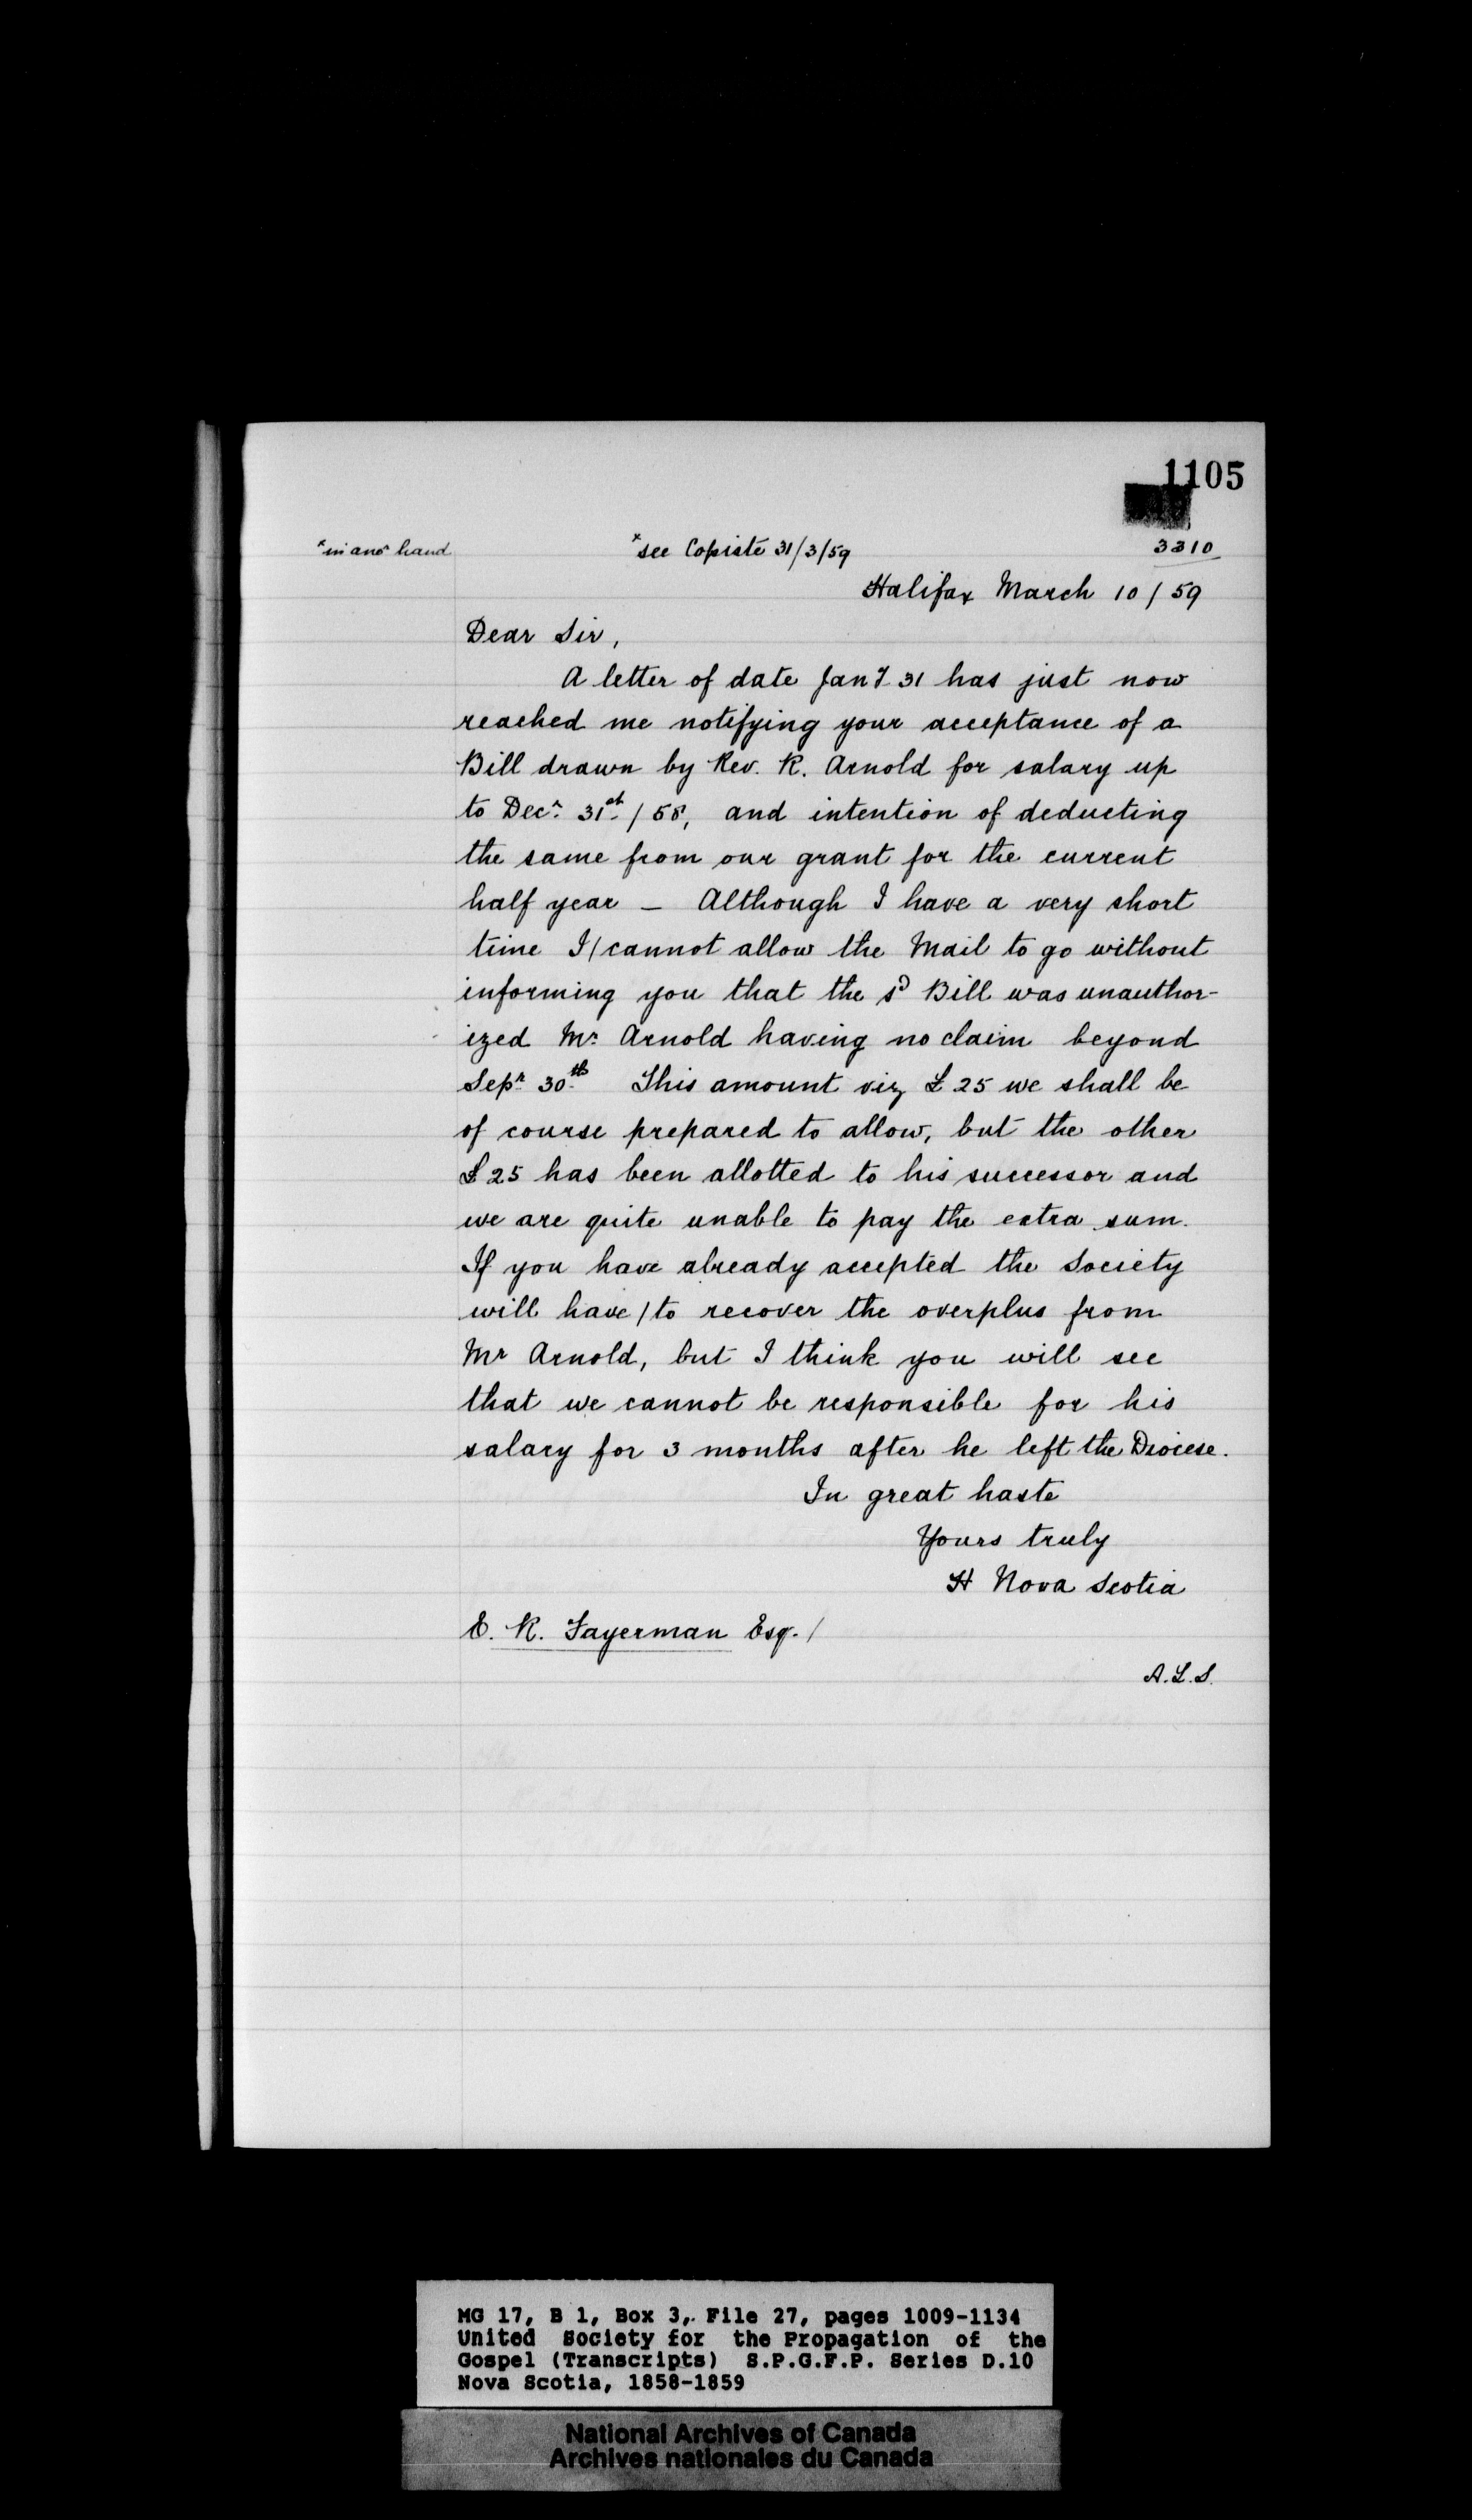 1105
3310
*in anor hand
*see Copiste 31/3/59
Halifax March 10/59
Dear Sir,
A letter of date Jany 31 has just now
reached me notifying your acceptance of a
Bill drawn by Rev. R. Arnold for salary up
to Decr. 31st / 58, and intention of deducting
the same from our grant for the current
half year – Although I have a very short
time I/cannot allow the Mail to go without
informing you that the sd Bill was unauthor-
ized Mr. Arnold having no claim beyond
Sepr. 30th This amount viz £25 we shall be
of course prepared to allow, but the other
£25 has been allotted to his successor and
we are quite unable to pay the extra sum.
If you have already accepted the Society
will have/to recover the overplus from
Mr Arnold, but I think you will see
that we cannot be responsible for his
salary for 3 months after he left the Diocese.
In great haste
Yours truly
H Nova Scotia
E. R. Fayerman Esq. /
A.L.S.
MG 17, B 1, Box 3, File 27, pages 1009-1134
United Society for the Propagation of the
Gospel (Transcripts) S.P.G.F.P. Series D.10
Nova Scotia, 1858-1859
National Archives of Canada
Archives nationales du Canada